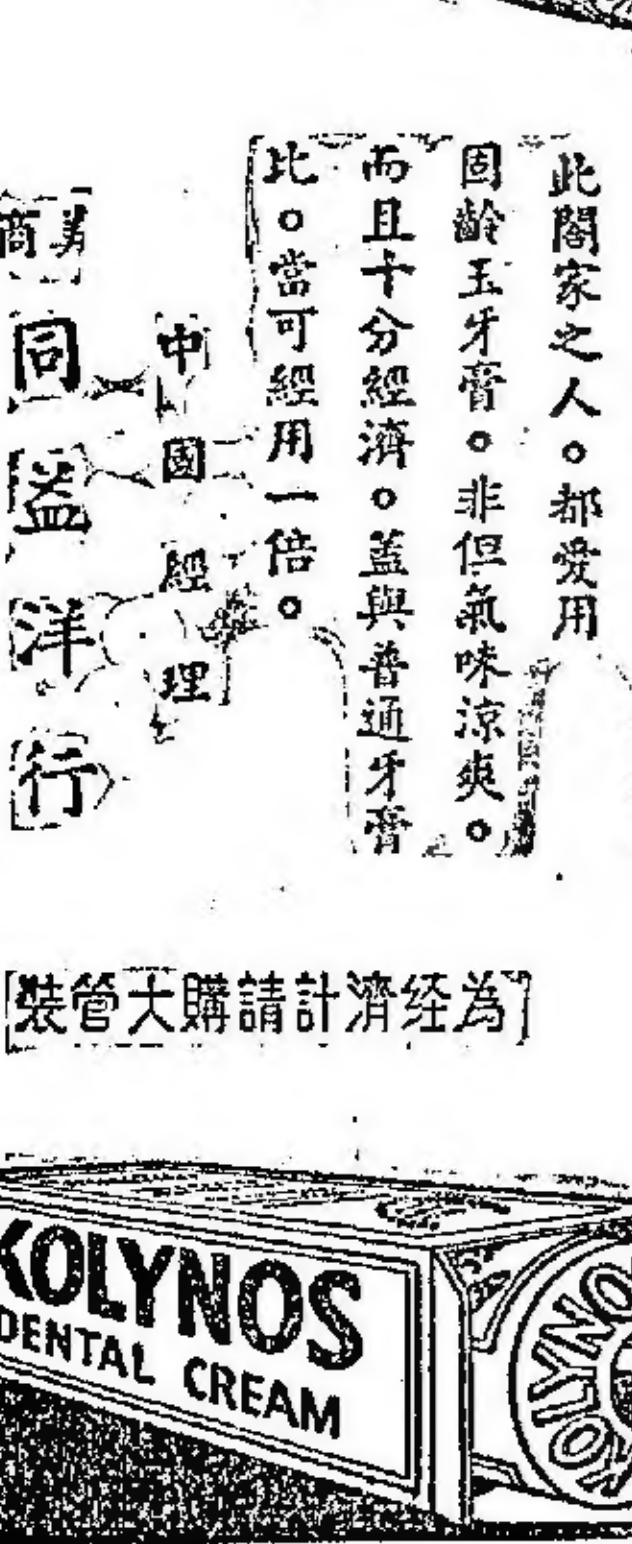 此閤家之人。都愛用
固齡玉牙膏。非但氣味涼爽。
而且十分經濟。蓋與普通牙膏
比。當可經用一倍。
中國經理
美商
同益洋行
為经濟計請購大管裝
KOLYNOS
DENTAL CREAM
KOLYNOS